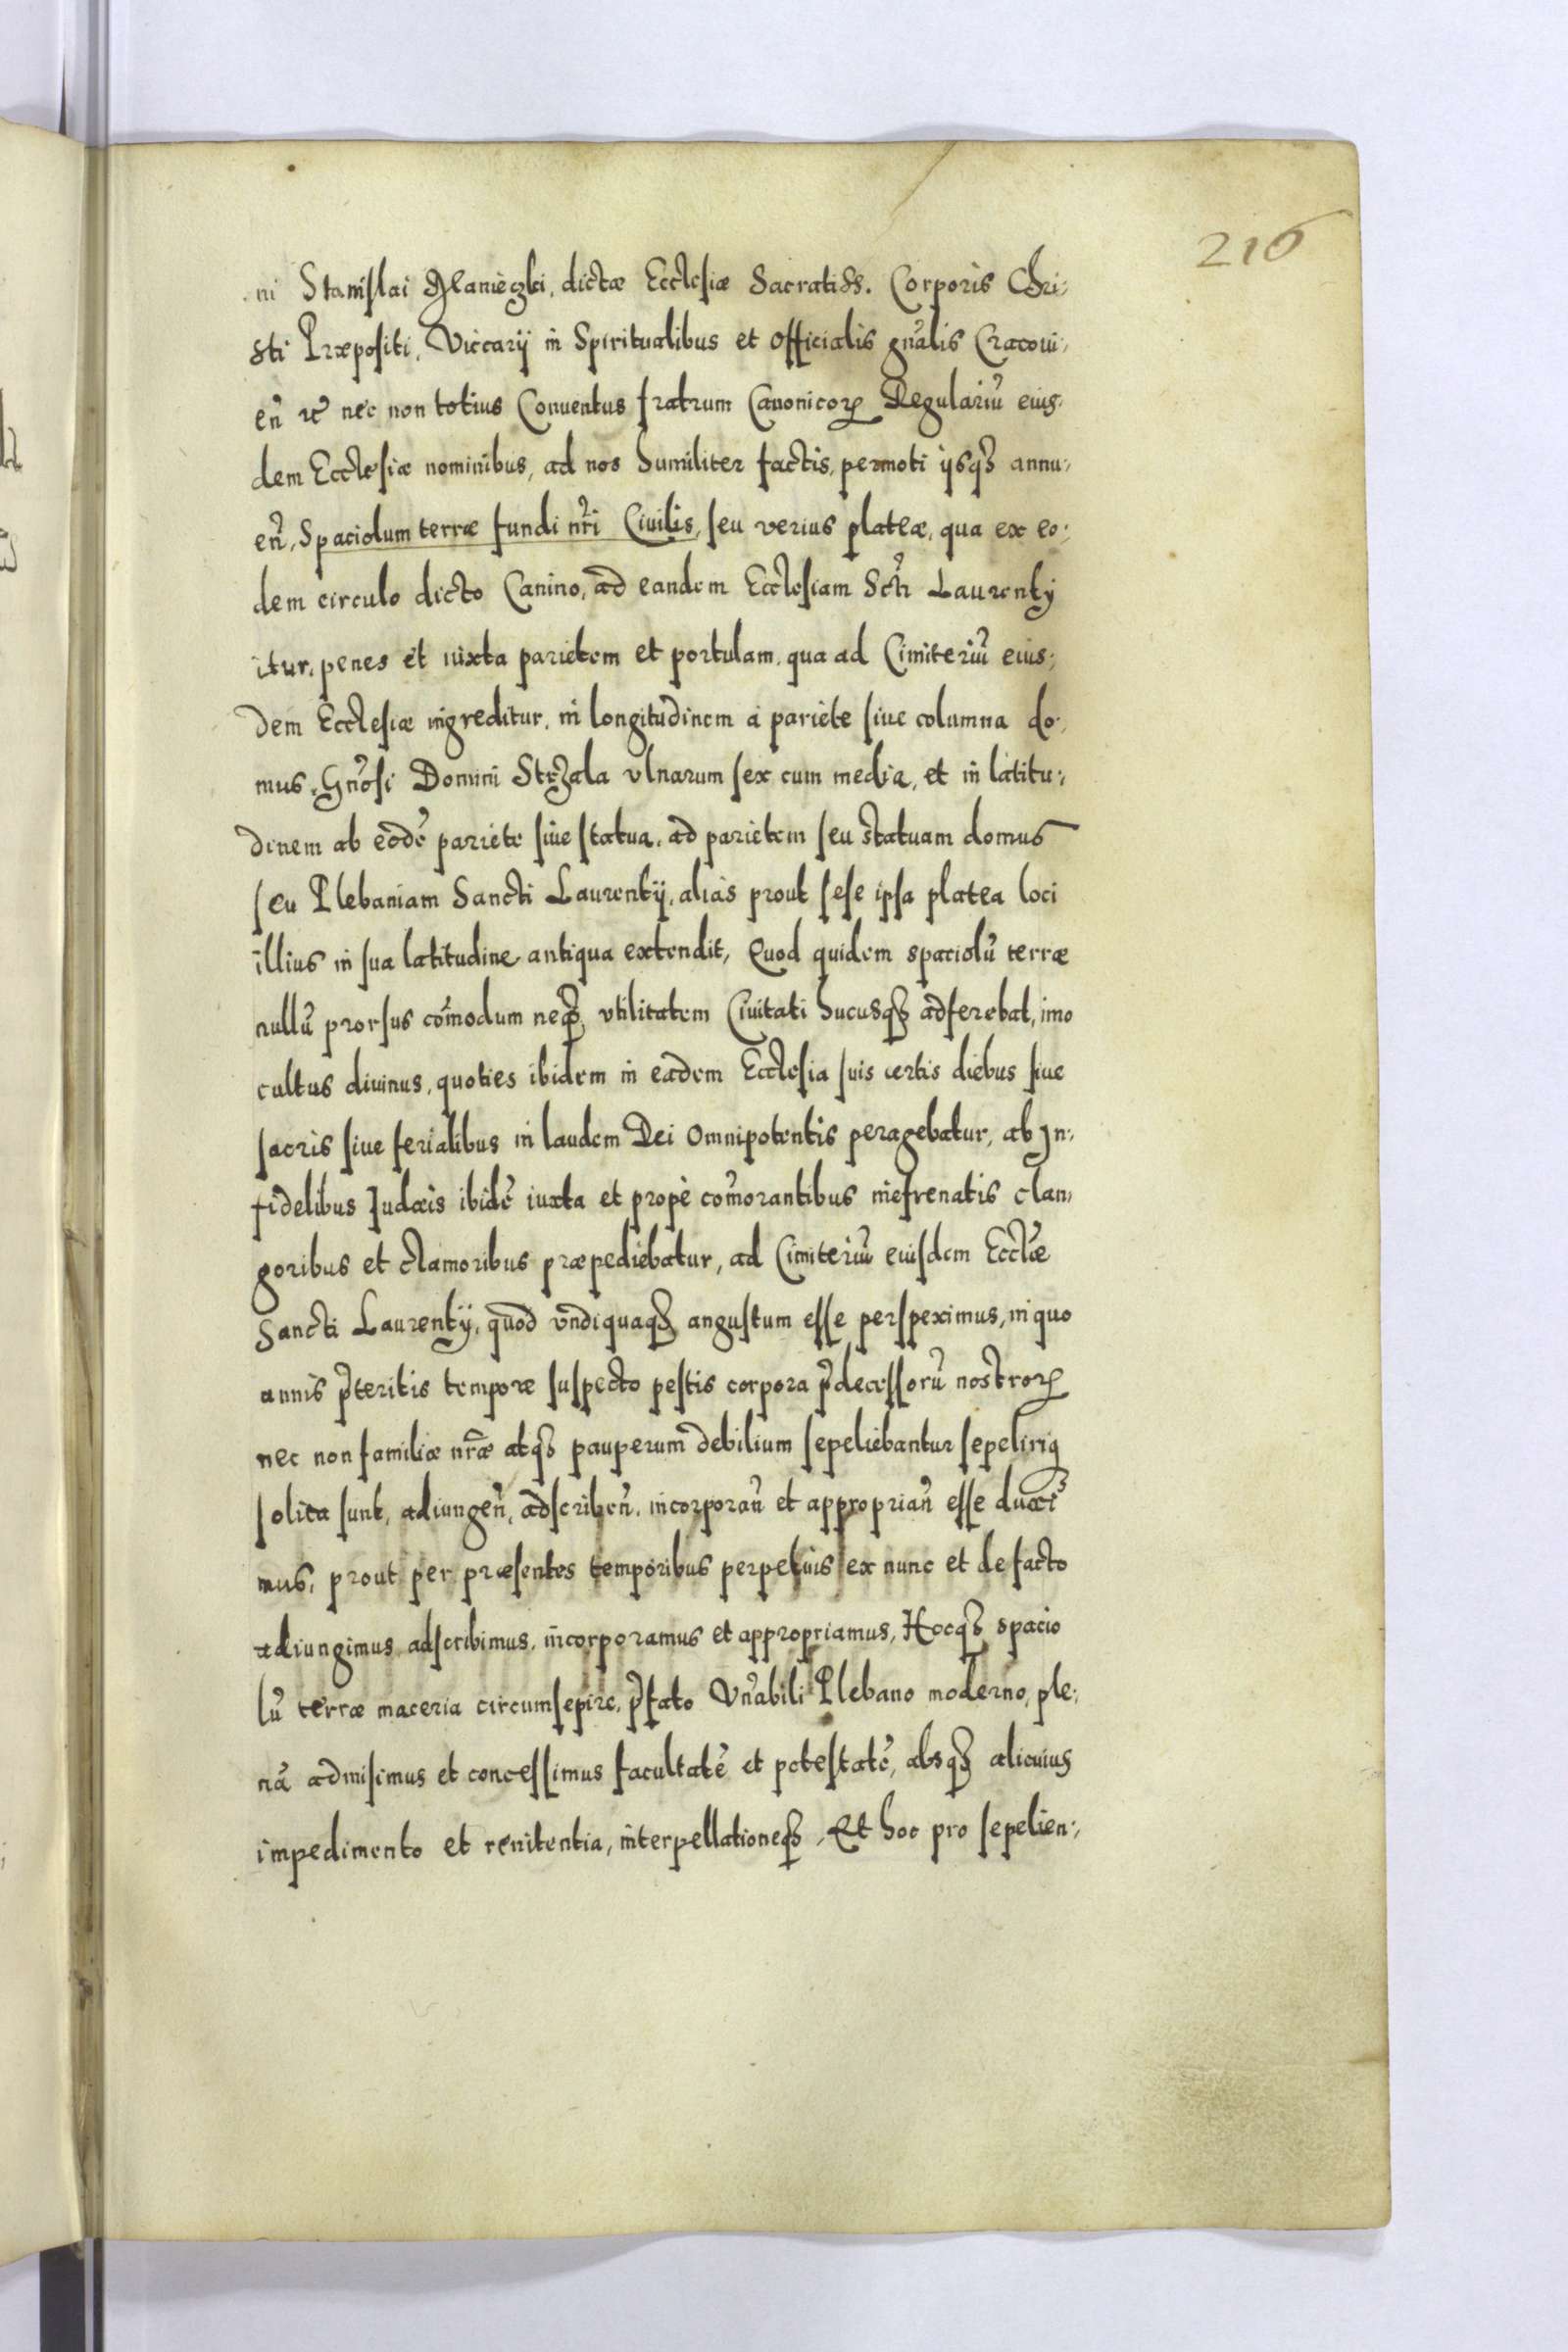 216
ni Stanislai dictæ Ecclesiæ Sacratiss. Corporis Chri:
sti Præpositi, Viccarÿ in Spiritualibus et Officialis gnãlis Cracoui:
eñ nec non totius Conuentus fratrum Canonicorꝝ Regulariũ eius:
dem Ecclesiæ nominibus, ad nos humiliter factis, permoti ÿsqꝫ annu:
eñ, Spaciolum terræ fundi nr̃i Ciuilis, seu verius plateæ, qua ex eo:
dem circulo dicto Canino, ad eandem Ecclesiam Sct̃i Laurentÿ
itur, penes et iuxta parietem et portulam, qua ad Cimiteriũ eius:
dem Ecclesiæ ingreditur, in longitudinem à pariete siue columna do:
mus, Gnõsi Domini Strzala vlnarum sex cum media, et in latitu:
dinem ab eodẽ pariete siue statua, ad parietem seu statuam domus
seu Plebaniam Sancti Laurentÿ, aliàs prout sese ipsa platea loci
illius in sua latitudine antiqua extendit, Quod quidem spaciolũ terræ
nullũ prorsus com̃odum neqꝫ vtilitatem Ciuitati hucusqꝫ adferebat, imo
cultus diuinus, quoties ibidem in eadem Ecclesia suis certis diebus siue
sacris siue ferialibus in laudem Dei Omnipotentis peragebatur, ab In:
fidelibus Iudæis ibidẽ iuxta et propè com̃orantibus inefrenatis clan:
goribus et clamoribus præpediebatur, ad Cimiteriũ eiusdem Eccl̃iæ
Sancti Laurentÿ, quod vndiquaqꝫ angustum esse perspeximus, in quo
annis p̃teritis tempore suspecto pestis corpora p̃decessorũ nostrorꝝ
nec non familiæ nr̃æ atqꝫ pauperum debilium sepeliebantur sepeliriqꝫ
solita sunt, adiungeñ, adscribeñ, incorporañ et appropriañ esse duxi
mus, prout per præsentes temporibus perpetuis ex nunc et de facto
adiungimus adscribimus, incorporamus et appropriamus, Hocqꝫ spacio
lũ terræ maceria circumsepire, p̃fato Vñabili Plebano moderno, ple:
nã admisimus et concessimus facultatẽ et potestatẽ, absqꝫ alicuius
impedimento et renitentia, interpellationeqꝫ, Et hoc pro sepelien: